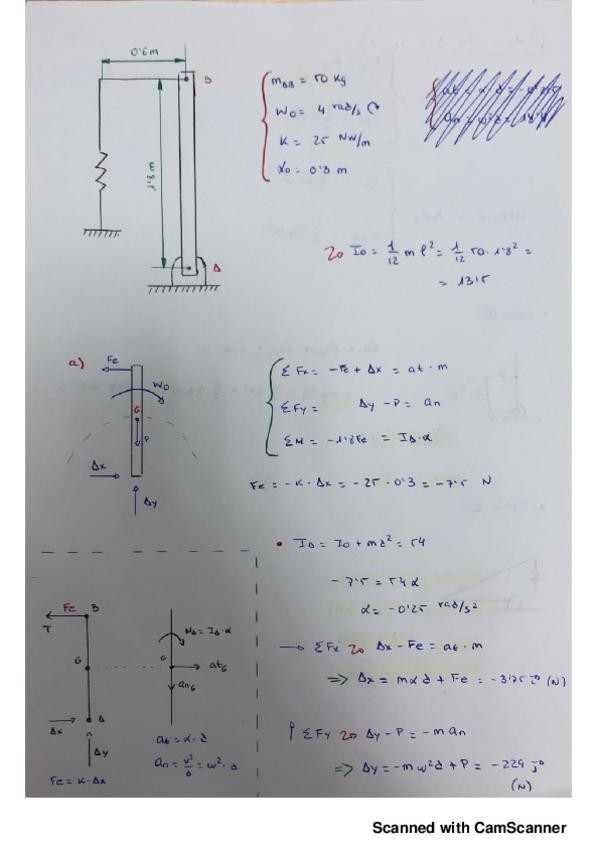 0'6 m
B
1'8 m
A
m_AB = 50 kg
W0 = 4 rad/s ↷
K = 25 Nw/m
X0 = 0'3 m
I0 = 1/12 m l² = 1/12 50 · 1'8² =
= 13'5
a)
Fe
W0
G
P
Ax
Ay
ΣFx = -Fe + Ax = at · m
ΣFy = Ay - P = an
ΣM = -1'8Fe = IA·α
Fe = -K · Δx = -25 · 0'3 = -7'5 N
• IA = I0 + md² = 54
-7'5 = 54α
α = -0'25 rad/s²
→ ΣFx Ax - Fe = at · m
⇒ Ax = mαd + Fe = -3'75 (N)
ΣFy Ay - P = -m an
⇒ Ay = -mω²d + P = -229
(N)
Fe
B
T
G
Ax
A
Ay
Fe = K · Δx
MA = IA·α
G
atG
anG
at = α · d
an = v²/d = ω² · d
Scanned with CamScanner